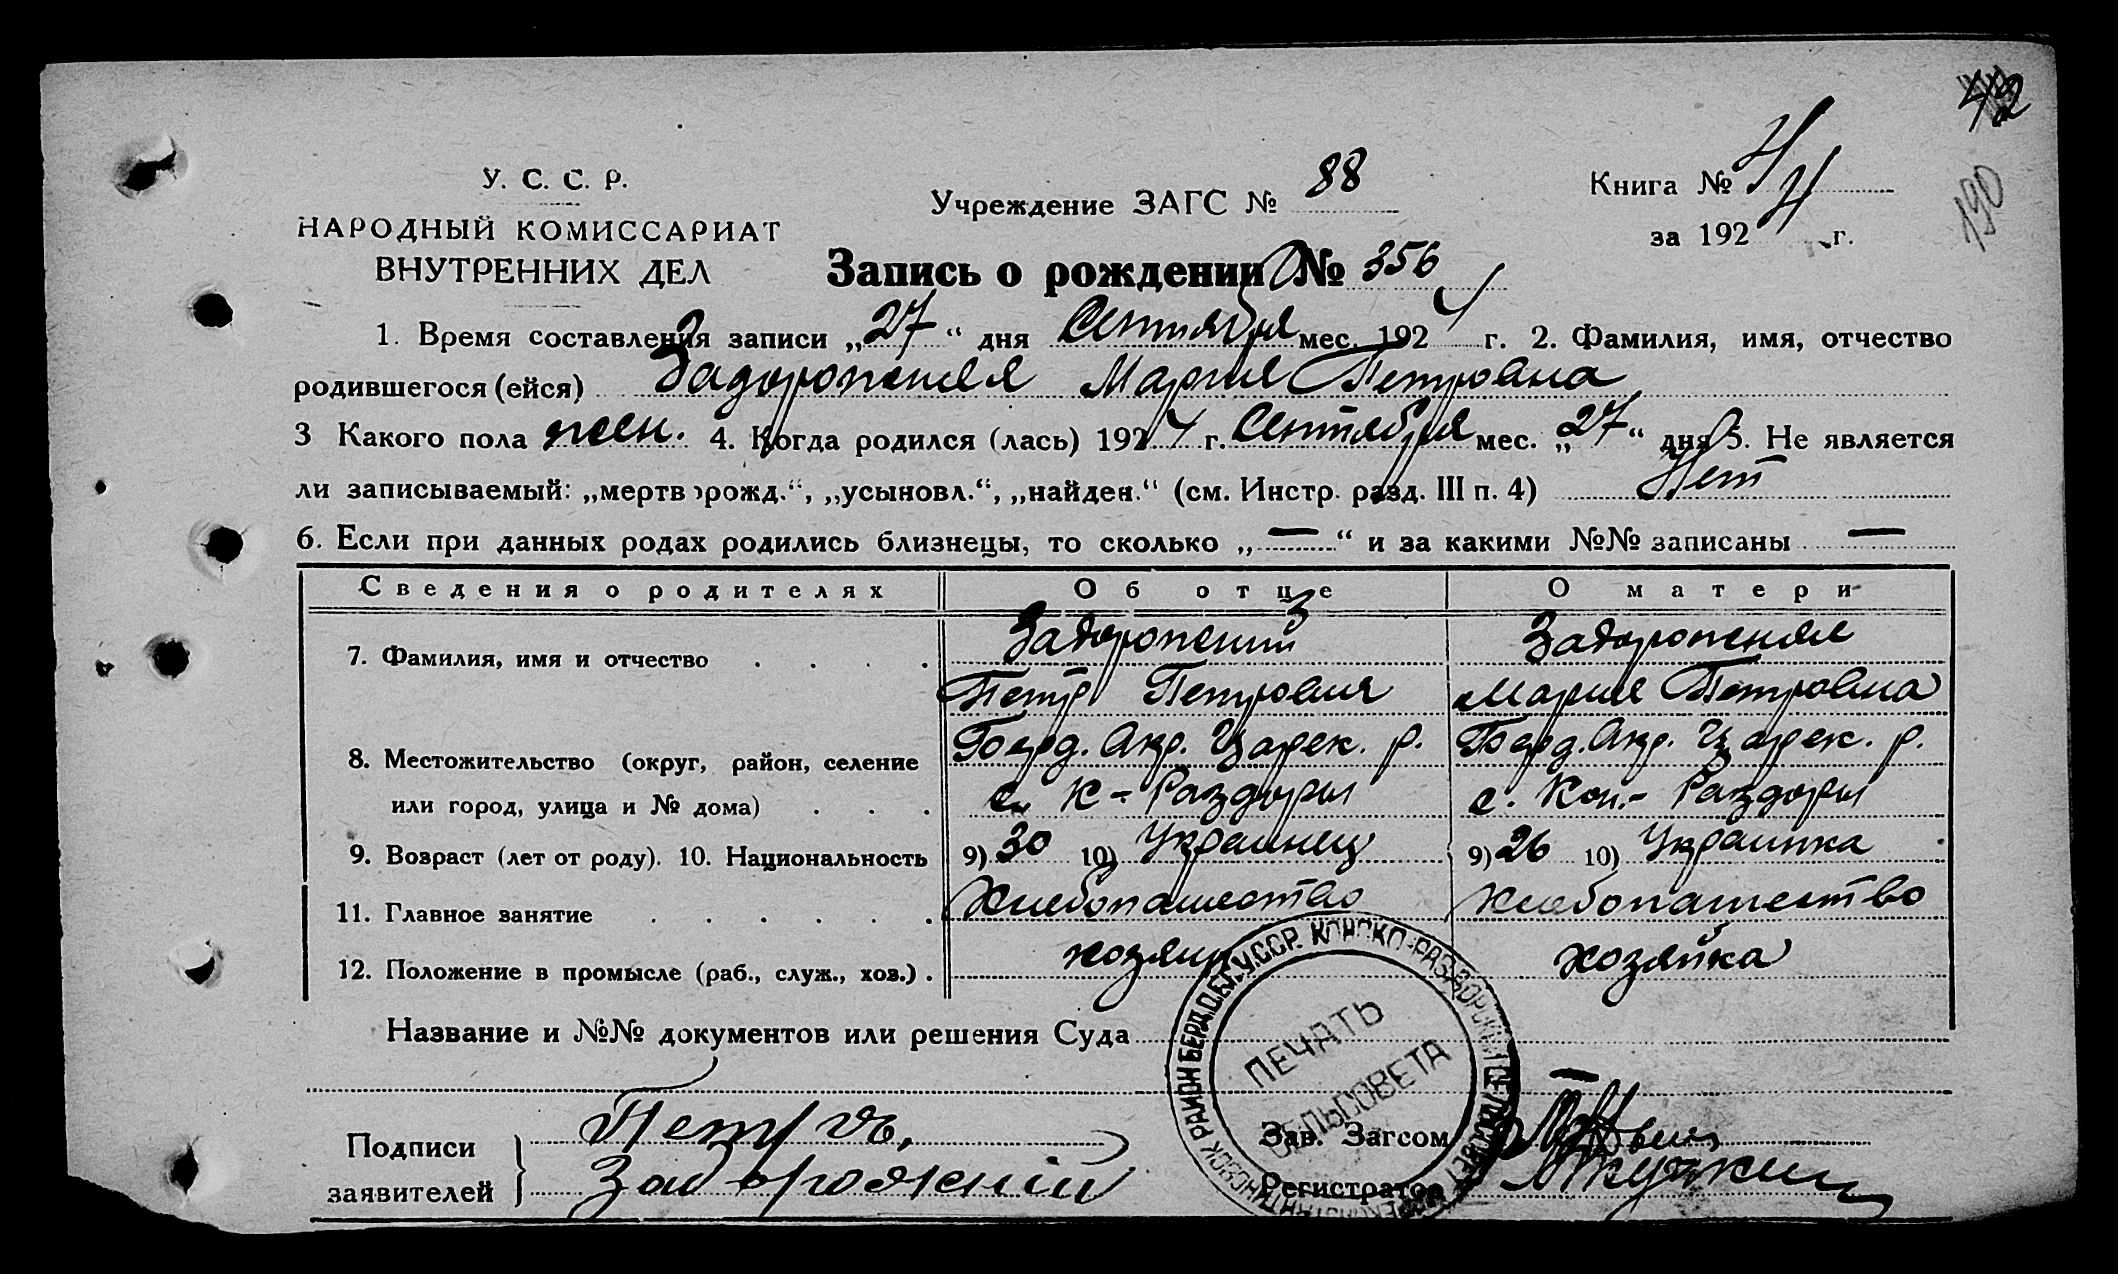 42
190
У. С. С. Р.
НАРОДНЫЙ КОМИССАРИАТ
ВНУТРЕННИХ ДЕЛ
Учреждение ЗАГС № 88
Книга №
за 1924 г.
Запись о рождении № 356
1. Время составления записи „27“ дня Сентября мес. 1924 г. 2. Фамилия, имя, отчество
родившегося (ейся) Задорожняя Мария Петровна
3 Какого пола жен. 4. Когда родился (лась) 1924 г. Сентября мес. „27“ дня 5. Не является
ли записываемый: „мертворожд.“, „усыновл.“, „найден.“ (см. Инстр. разд. III п. 4) Нет
6. Если при данных родах родились близнецы, то сколько „—“ и за какими №№ записаны —
Сведения о родителях Об отце О матери
7. Фамилия, имя и отчество . . . . Задорожний Задорожняя
Петр Петрович Мария Петровна
8. Местожительство (округ, район, селение Берд. Окр. Царек. р. Берд. Окр. Царек. р.
или город, улица и № дома) . . . с. К-Раздоры с. Кон.- Раздоры
9. Возраст (лет от роду). 10. Национальность 9) 30 10) Украинец 9) 26 10) Украинка
11. Главное занятие . . . . . . Хлебопашество Хлебопашество
12. Положение в промысле (раб., служ., хоз.) . хозяин хозяйка
Название и №№ документов или решения Суда
УССР. КОНСКО-РАЗДОРСКИЙ
РАЙОН БЕРДЯ
ПЕЧАТЬ
СЕЛЬСОВЕТА
Подписи
заявителей
Петръ
Задорожний
Зав. Загсом
Регистратор